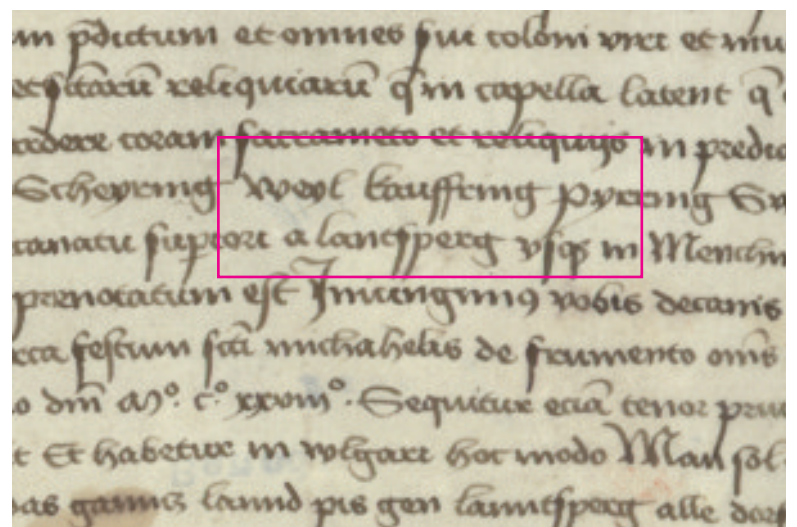 in pdictum et omnes sui coloni viri et mu
reliquiarū q̄ in capella latent q̄
cedere coram sacrameto et reliquijs in predic
Scheyring Weyl kauffring pyrring Sw
canatu supiori a lantsperg vsqȝ in Menchin
prenotatum est Iniungimus vobis decanis
festum scti michahelis de frumento omīs
o dm̄ Mº. cº. xxviiiº. Sequitur eciā tenor priu
t Et habetur in wlgari hoc modo Man sol
das gannz lannd pis gen lanntsperg alle dorf